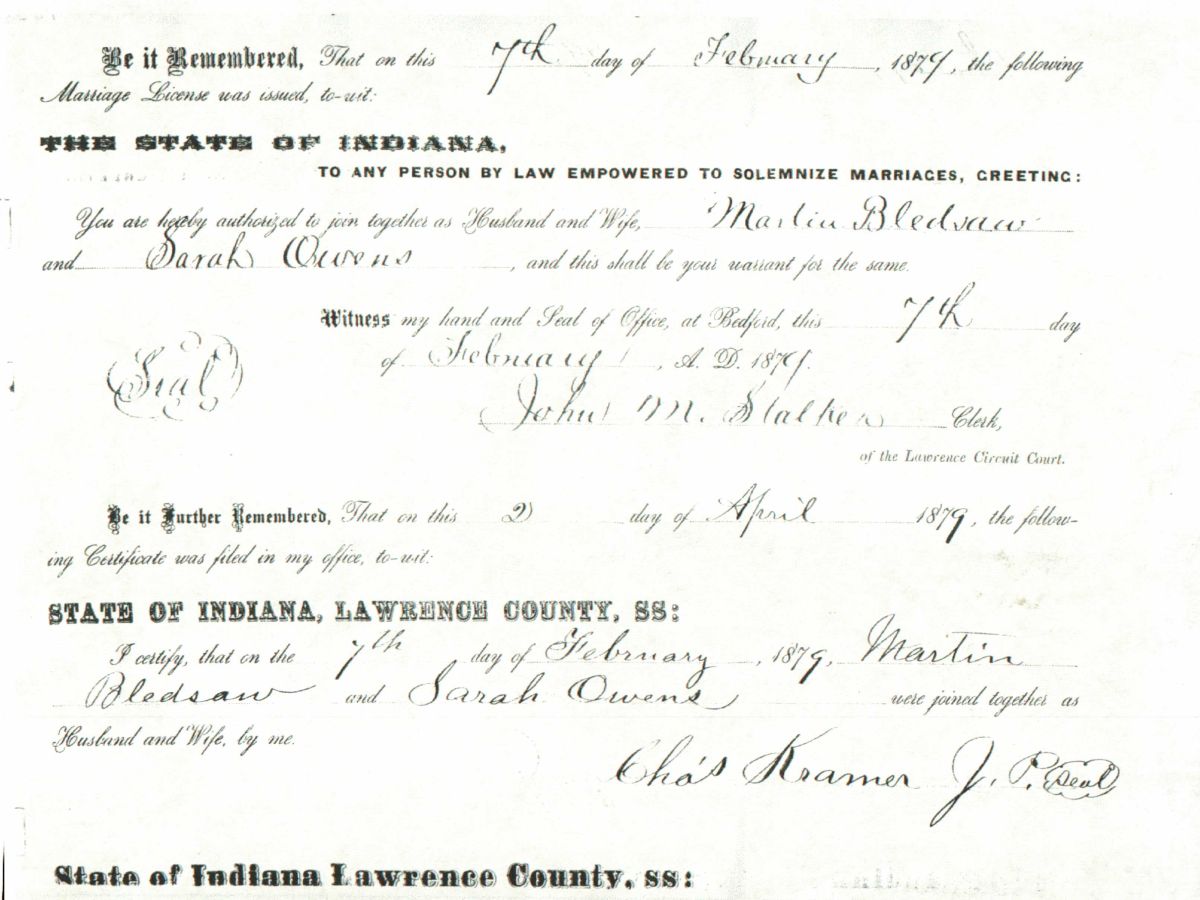 Be it Remembered, That on this 7th day of February, 1879, the following
Marriage License was issued, to-wit:
THE STATE OF INDIANA,
TO ANY PERSON BY LAW EMPOWERED TO SOLEMNIZE MARRIAGES, GREETING:
You are hereby authorized to join together as Husband and Wife, Martin Bledsaw
and Sarah Owens, and this shall be your warrant for the same.
Witness my hand and Seal of Office, at Bedford, this 7th day
Seal of February, A. D. 1879.
John M. Stalker Clerk,
of the Lawrence Circuit Court.
Be it Further Remembered, That on this 2 day of April 1879, the follow-
ing Certificate was filed in my office, to-wit:
STATE OF INDIANA, LAWRENCE COUNTY, SS:
I certify, that on the 7th day of February, 1879, Martin
Bledsaw and Sarah Owens were joined together as
Husband and Wife, by me.
Chas Kramer J. P. Seal
State of Indiana Lawrence County, ss: